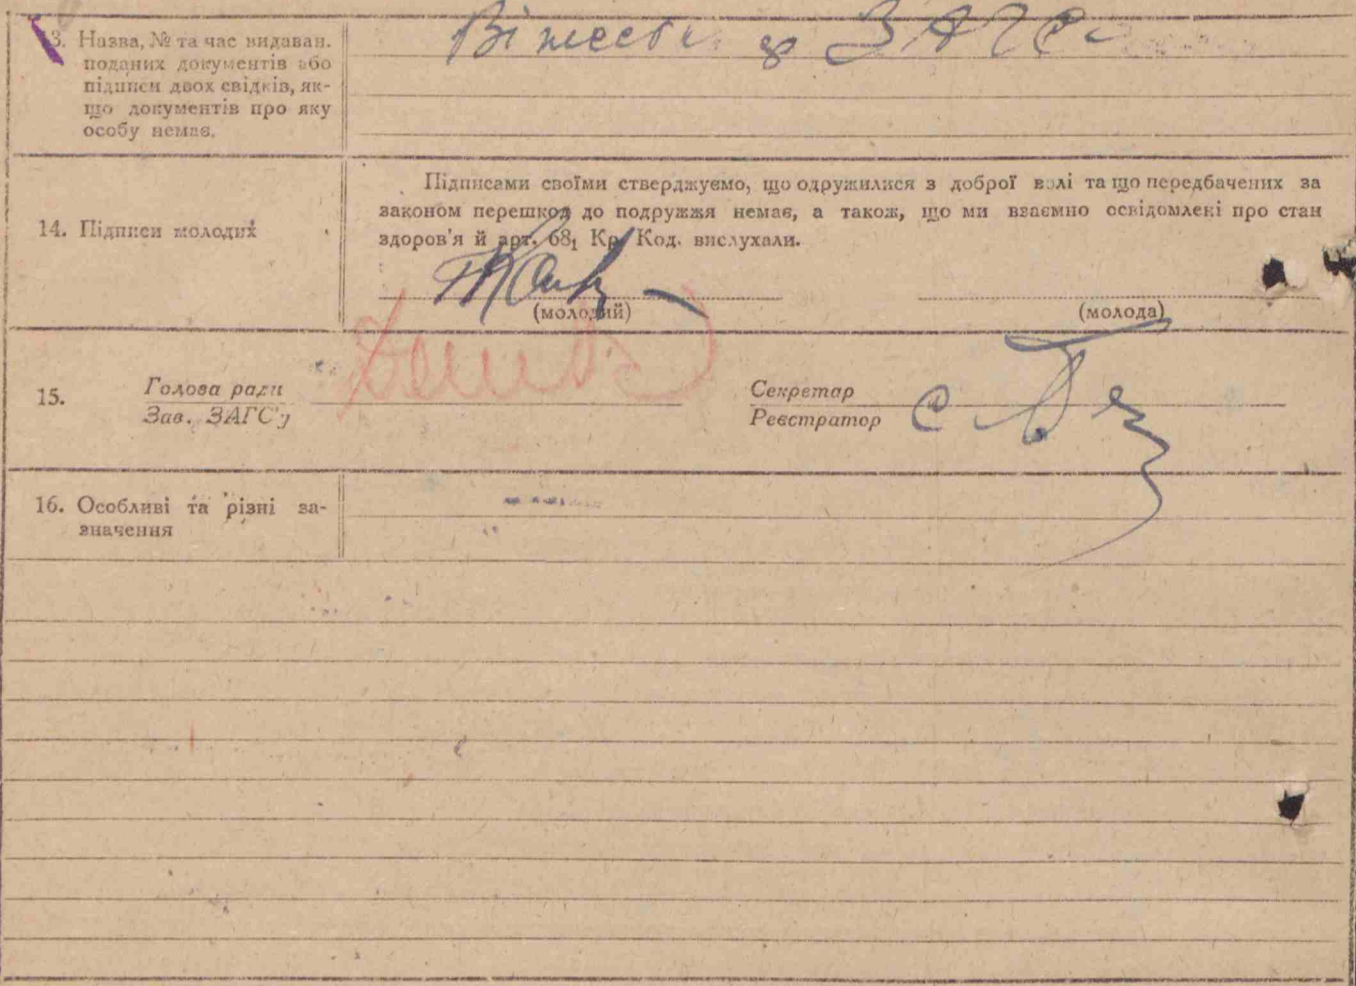 13. Назва, № та час видаван.
поданих документів або
підписи двох свідків, як-
що документів про яку
особу немає.
ЗАГС
14. Підписи молодих
Підписами своїми стверджуємо, що одружилися з доброї волі та що передбачених за
законом перешкод до подружжя немає, а також, що ми взаємно освідомлені про стан
здоров'я й арт. 68₁ Кр. Код. вислухали.
(молодий)
(молода)
15.
Голова ради
Зав. ЗАГС'у
Секретар
Реєстратор
16. Особливі та різні за-
значення